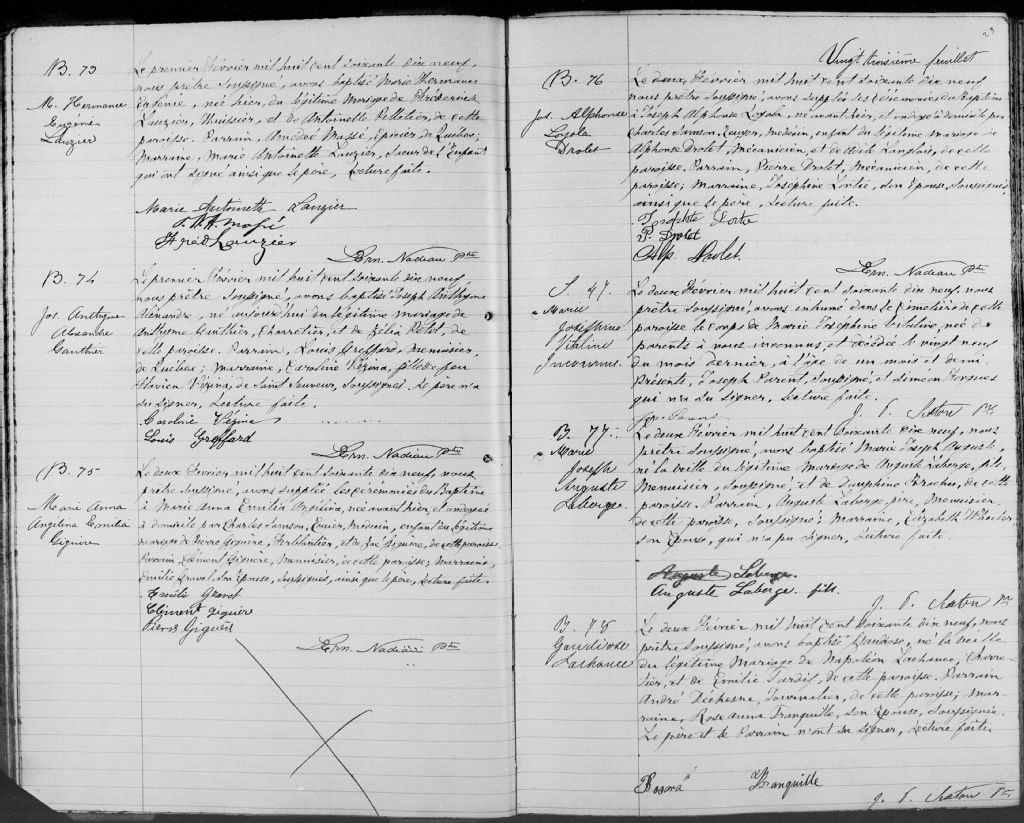 B. 73
M. Hermance
Eugénie
Lauzier
Le premier Février mil huit cent soixante dix neuf,
nous prêtre soussigné, avons baptisé Marie Hermance
née hier, du légitime mariage de
Lauzier, Huissier, et de Antoinette Pelletier, de cette
paroisse. Parrain, Amédée Massé, Epicier, de Québec;
Marraine, Marie Antoinette Lauzier, Soeur de l'Enfant
qui ont signé ainsi que le père, Lecture faite.
Marie Antoinette Lauzier
Lauzier
Ern. Nadeau Ptre
B. 74
Jos. Anthyme
Alexandre
Gauthier
Le premier Février mil huit cent soixante dix neuf,
nous prêtre soussigné, avons baptisé Joseph Anthyme
Alexandre, né aujourd'hui du légitime mariage de
Anthyme Gauthier, Charretier, et de Zélia de
cette paroisse. Parrain, Louis Greffard, Menuisier,
de Québec; marraine, Caroline Vézina, fille de feu
Flavien Vézina, de Saint Sauveur, soussignés. Le père n'a
su signer, Lecture faite.
Caroline Vézina
Louis Greffard
Ern. Nadeau Ptre
B. 75
Marie Anna
Angelina Emilie
Giguère
Le deux Février mil huit cent soixante dix neuf, nous
prêtre soussigné, avons suppléé les cérémonies du Baptême
à Marie Anna Emilie Angelina, née avant hier, et ondoyée
à domicile par Charles Samson, Ecuier, Médecin, enfant du légitime
mariage de Pierre Giguère, Ferblantier, et de Zoé Giguère, de cette paroisse.
Parrain, Clément Giguère, Menuisier, de cette paroisse; Marraine,
Emilie Gravel, son Epouse, soussignés, ainsi que le père, Lecture faite.
Emilie Gravel
Clément Giguère
Pierre Giguère
Ern. Nadeau Ptre
Vingt troisième feuillet
B. 76
Jos. Alphonse
Loyola
Drolet
Le deux Février mil huit cent soixante dix neuf
nous prêtre soussigné, avons suppléé les cérémonies du Baptême
à Joseph Alphonse Loyola, né avant hier, et ondoyé à domicile par
Charles Samson, Ecuyer, Médecin, enfant du légitime mariage de
Alphonse Drolet, Mécanicien, et de Langlois, de cette
paroisse. Parrain, Pierre Drolet, Mécanicien, de cette
paroisse; Marraine, Joséphine Lortie, son Epouse, soussignés
ainsi que le père, Lecture faite.
Lortie
P. Drolet
Alp. Drolet.
Ern. Nadeau Ptre
S. 47.
Marie
Joséphine
Vitaline
Inconnue.
Le deux Février mil huit cent soixante dix neuf, nous
prêtre soussigné, avons inhumé dans le Cimetière de cette
paroisse le corps de Marie Joséphine Vitaline, née de
parents à nous inconnus, et décédée le vingt neuf
du mois dernier, à l'âge de un mois et demi.
Présents, Joseph Parent, soussigné, et Siméon
qui n'a su signer, Lecture faite.
Jos. Parent
B. 77.
Marie
Joseph
Auguste
Laberge.
Le deux Février mil huit cent soixante dix neuf, nous
prêtre soussigné, avons baptisé Marie Joseph Auguste,
né la veille du légitime Mariage de Auguste Laberge, fils,
Menuisier, soussigné, et de Dauphine de cette
paroisse. Parrain, Auguste Laberge père, Menuisier,
de cette paroisse, soussigné; Marraine, Elizabeth Wheeler,
son Epouse, qui n'a pu signer, Lecture faite.
Auguste Laberge.
Auguste Laberge. fils.
B. 78
Gaudiose
Lachance
Le deux Février mil huit cent soixante dix neuf, nous
prêtre soussigné, avons baptisé Gaudiose, né la veille
du légitime Mariage de Napoléon Lachance, Charre-
tier, et de Emilie Tardif, de cette paroisse. Parrain
André Déchesne, Journalier, de cette paroisse; Mar-
raine, Rose Anna Tranquille, son Epouse, soussignée.
Le père et le Parrain n'ont su signer, Lecture faite.
Tranquille